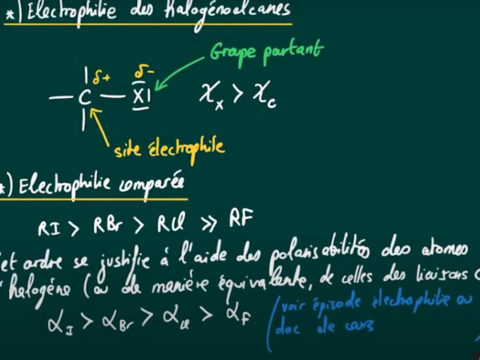 *) Electrophilie des halogénoalcanes
Groupe partant
δ+ δ-
— C — X|
χx > χc
site électrophile
*) Electrophilie comparée
RI > RBr > RCl >> RF
et ordre se justifie à l'aide des polarisabilités des atomes
halogène (ou de manière équivalente, de celles des liaisons C
αI > αBr > αCl > αF
(voir épisode électrophilie ou
doc de cours